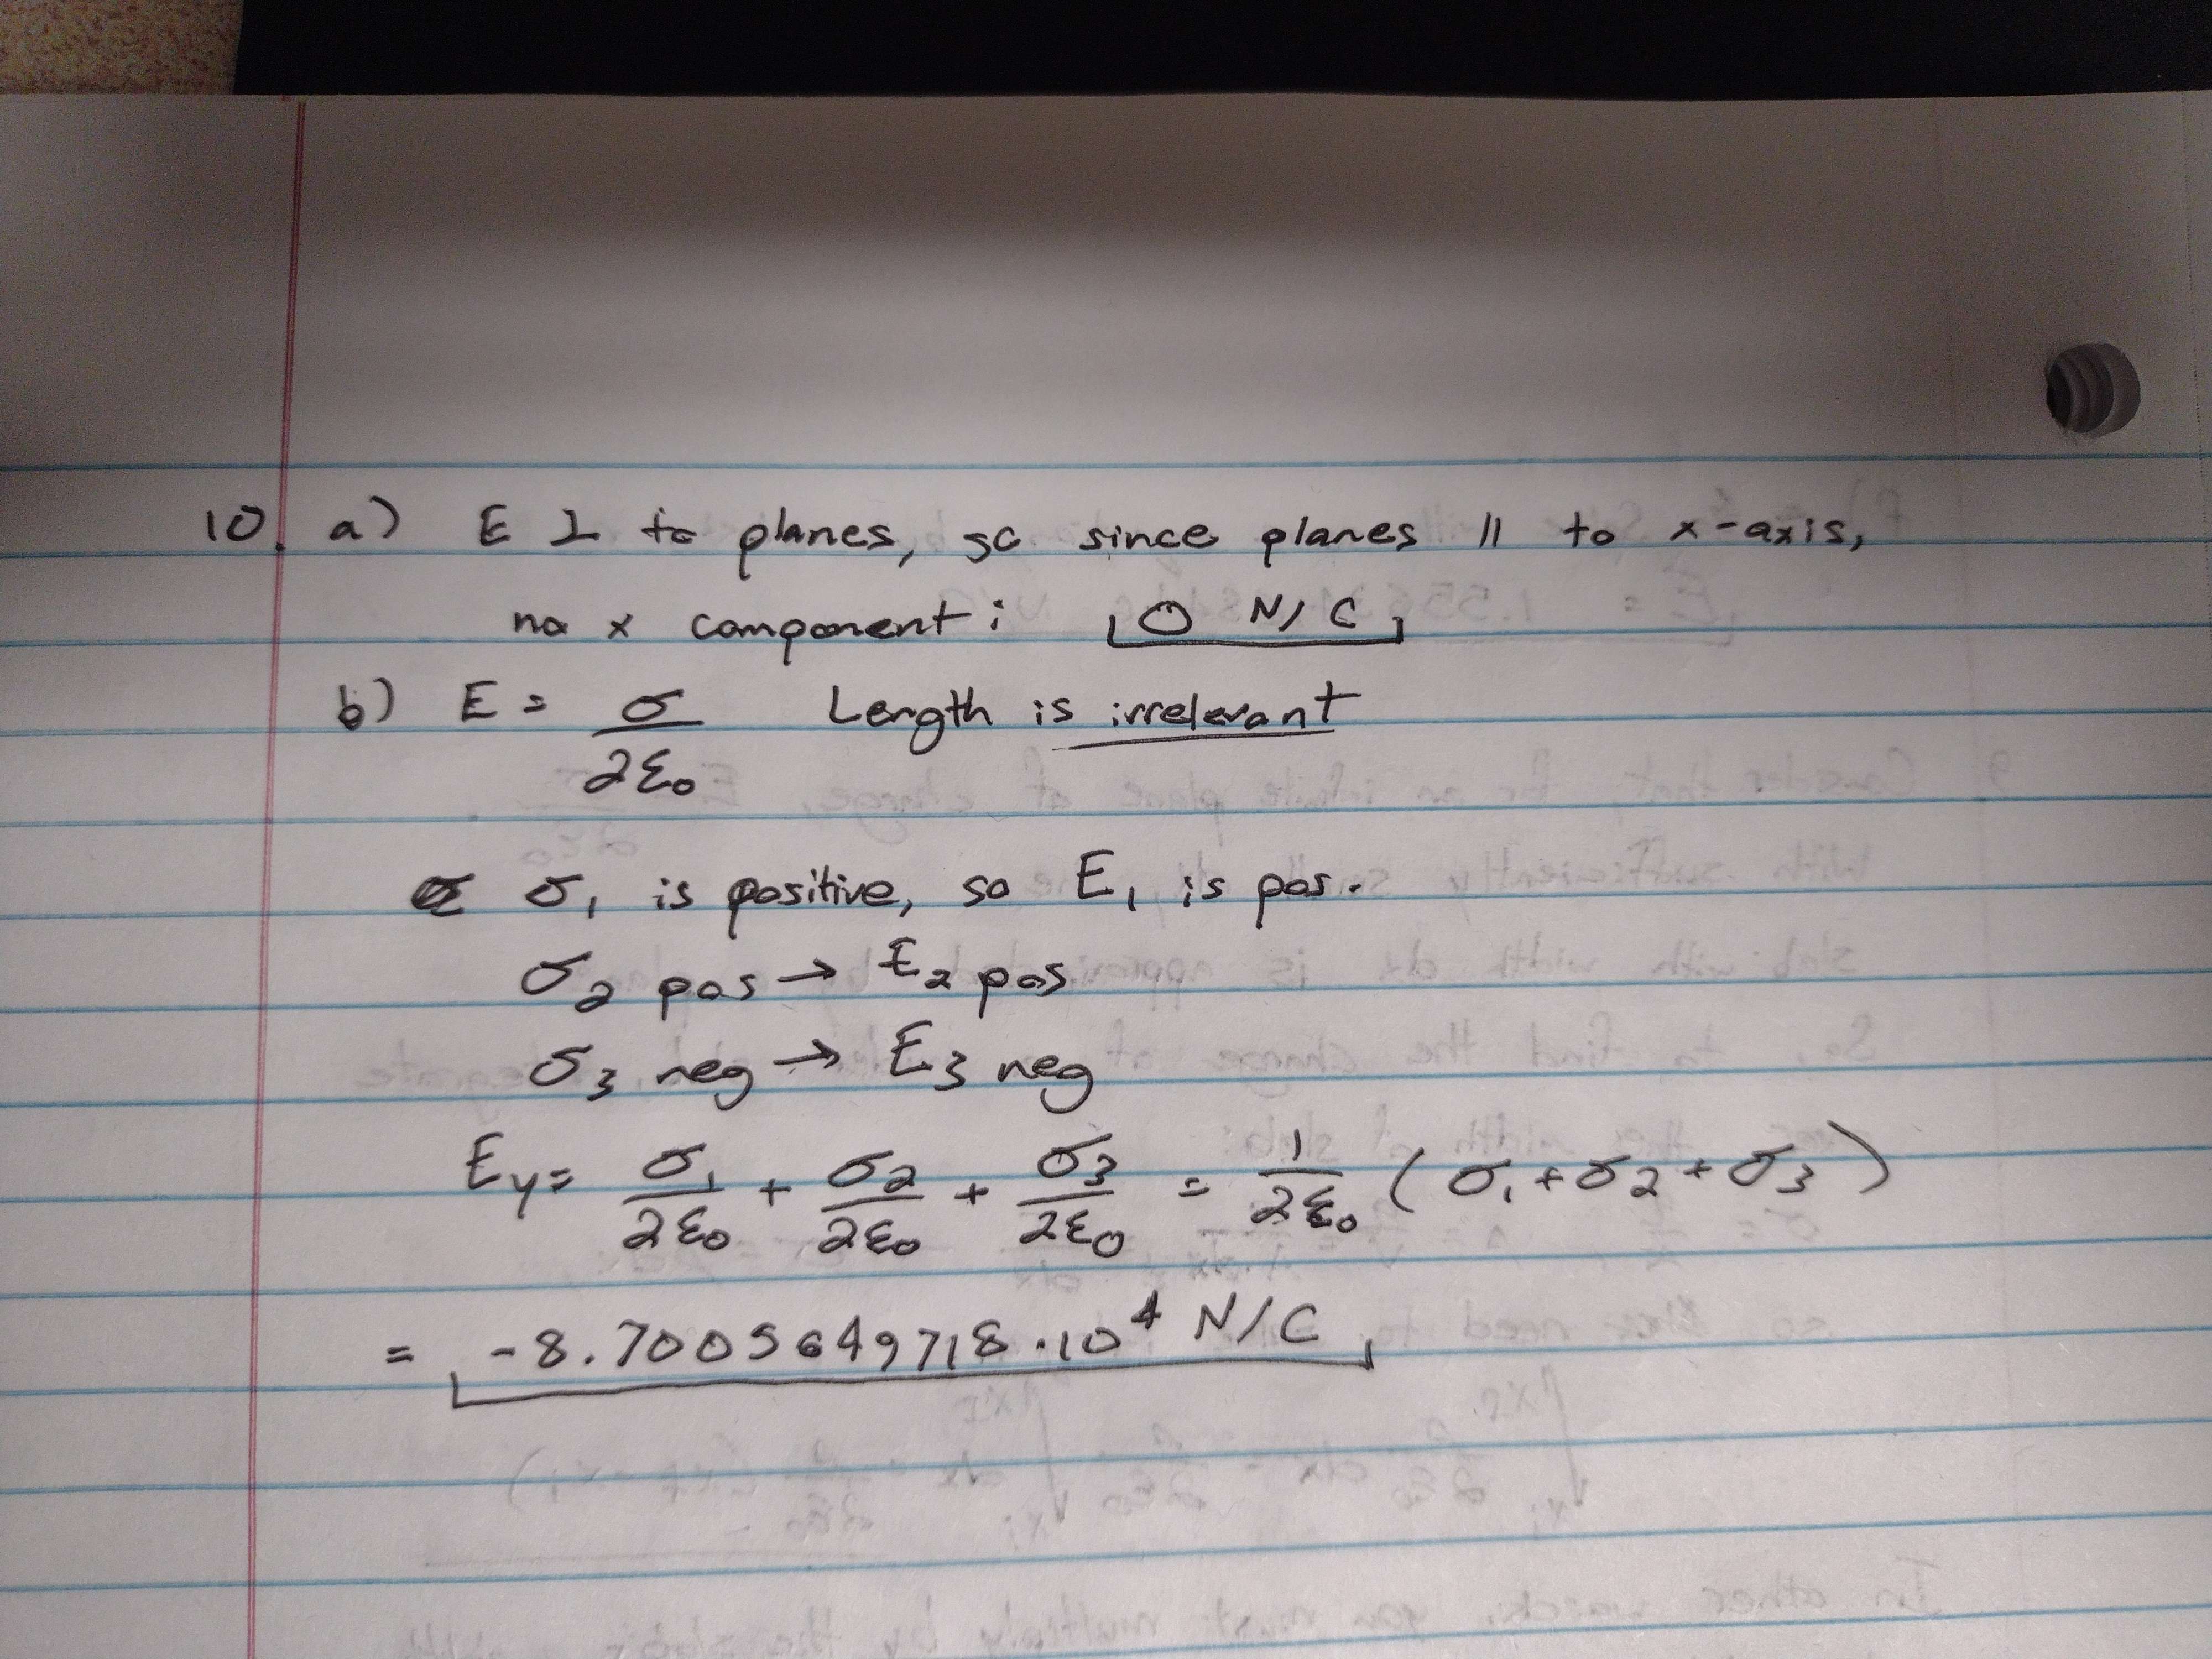 10. a) E ⊥ to planes, so since planes || to x-axis,
no x component: 0 N/C
b) E = σ/2ε₀ Length is irrelevant
σ₁ is positive, so E₁ is pos.
σ₂ pos → E₂ pos
σ₃ neg → E₃ neg
Ey = σ₁/2ε₀ + σ₂/2ε₀ + σ₃/2ε₀ = 1/2ε₀ (σ₁ + σ₂ + σ₃)
= -8.7005649718 · 10⁴ N/C